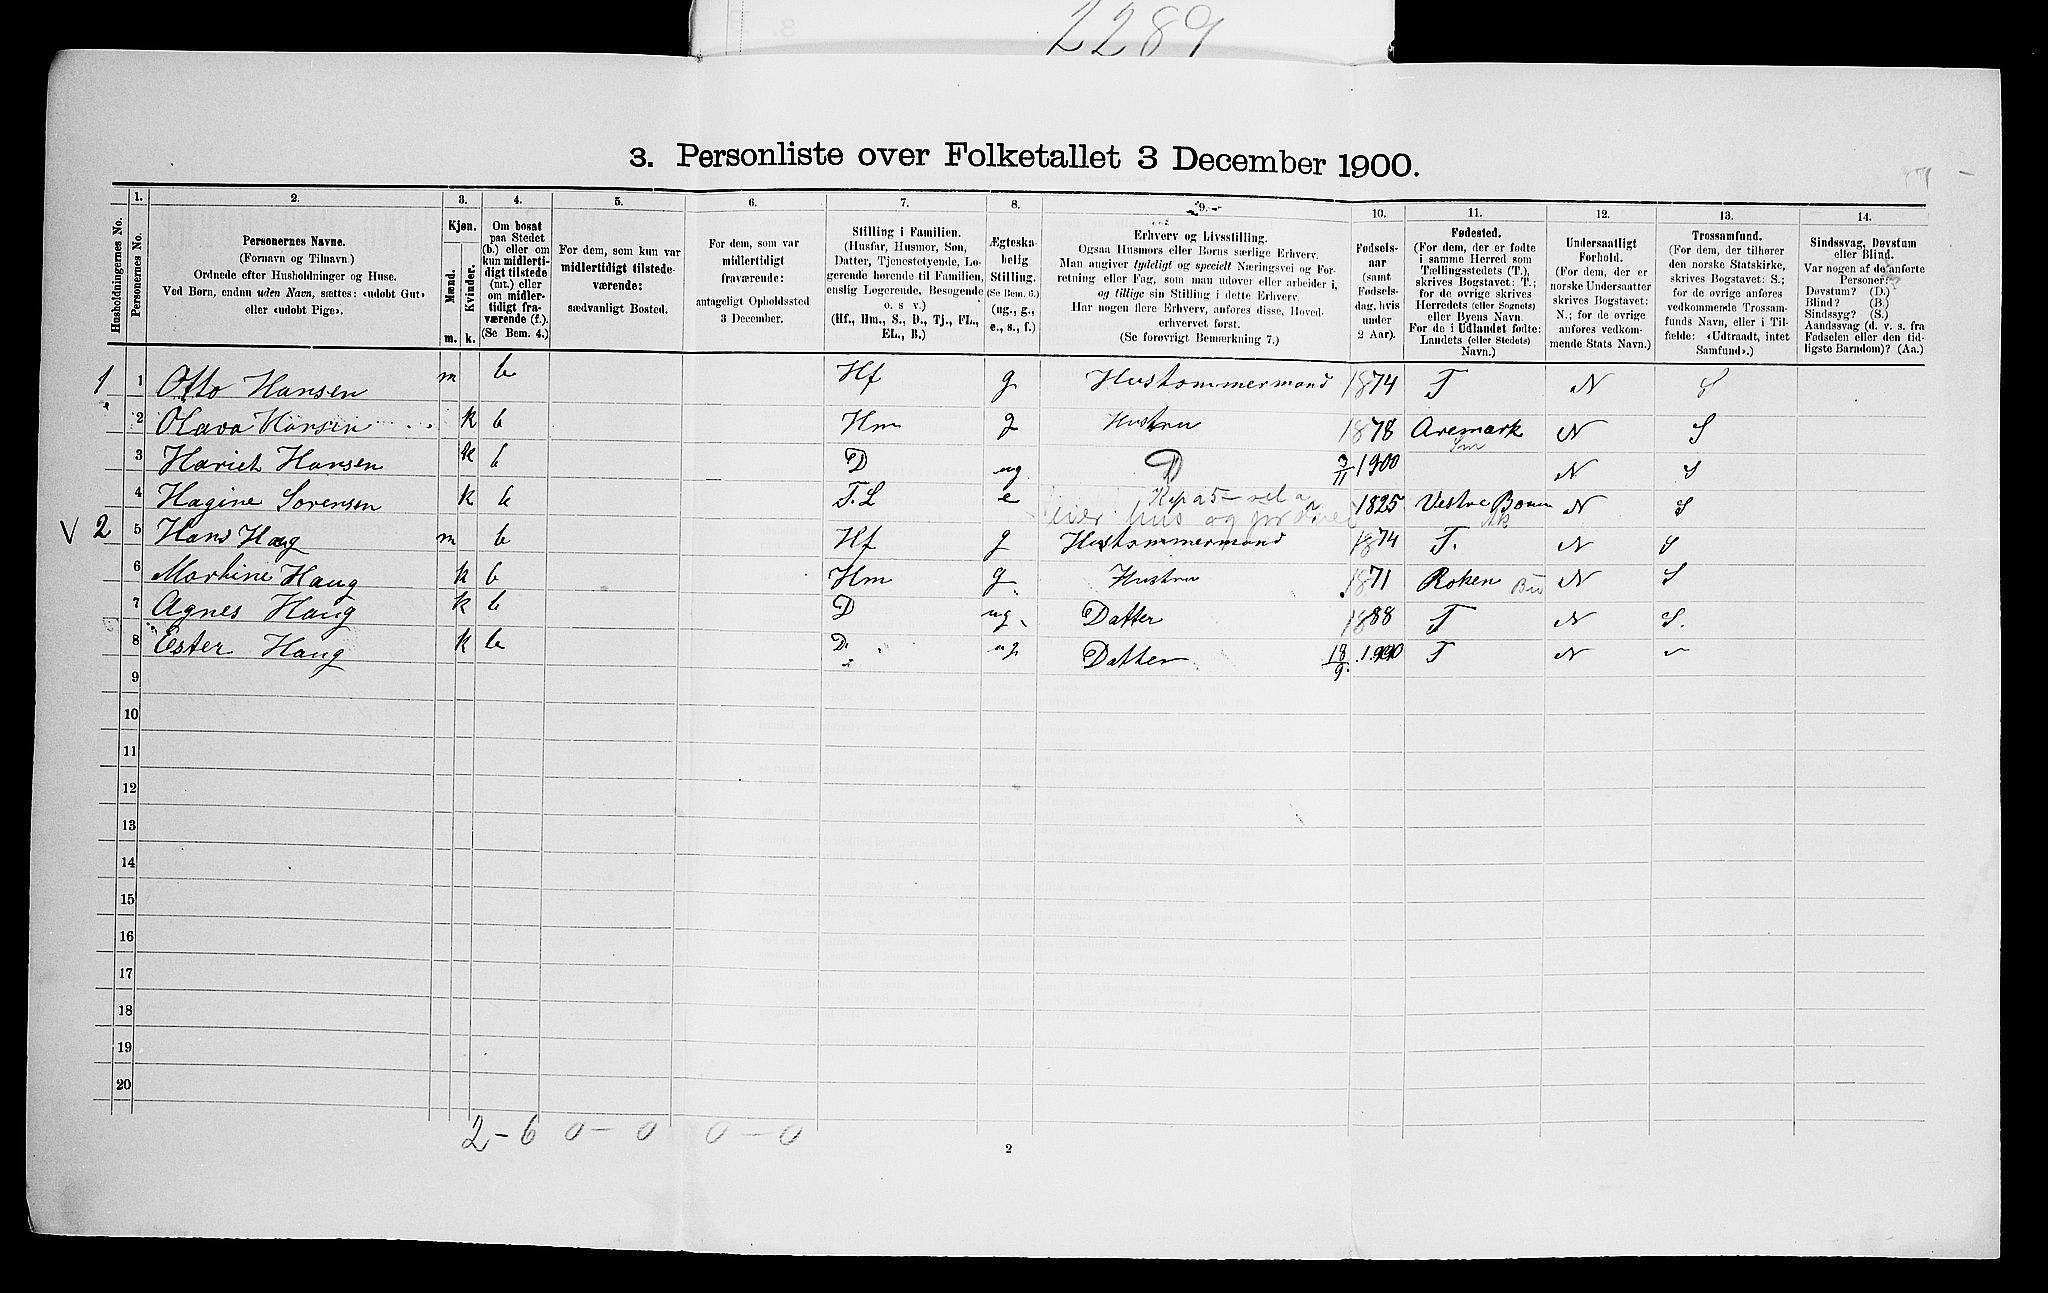 2289
3. Personliste over Folketallet 3 December 1900.
Husholdningernes No.
1.
Personernes No.
2.
Personernes Navne.
(Fornavn og Tilnavn.)
Ordnede efter Husholdninger og Huse.
Ved Børn, endnu uden Navn, sættes: «udøbt Gut»
eller «udøbt Pige».
3.
Kjøn.
Mænd.
Kvinder.
m. k.
4.
Om bosat
paa Stedet
(b.) eller om
kun midlerti-
digt tilstede
(mt.) eller
om midler-
tidigt fra-
værende (f.).
(Se Bem. 4.)
5.
For dem, som kun var
midlertidigt tilstede-
værende:
sædvanligt Bosted.
6.
For dem, som var
midlertidigt
fraværende:
antageligt Opholdssted
3 December.
7.
Stilling i Familien.
(Husfar, Husmor, Søn,
Datter, Tjenestetyende, Lo-
gerende hørende til Familien,
enslig Logerende, Besøgende
o. s. v.)
(Hf., Hm., S., D., Tj., FL.,
EL., B.)
8.
Ægteska-
belig
Stilling.
(Se Bem. 6.)
(ug., g.,
e., s., f.)
9.
Erhverv og Livsstilling.
Ogsaa Husmors eller Børns særlige Erhverv.
Man angiver tydeligt og specielt Næringsvei og For-
retning eller Fag, som man udøver eller arbeider i,
og tillige sin Stilling i dette Erhverv.
Har nogen flere Erhverv, anføres disse, Hoved-
erhvervet først.
(Se forøvrigt Bemærkning 7.)
10.
Fødsels-
aar
(samt
Fødsels-
dag, hvis
under
2 Aar).
11.
Fødested.
(For dem, der er fødte
i samme Herred som
Tællingsstedets (T.),
skrives Bogstavet: T.;
for de øvrige skrives
Herredets (eller Sognets)
eller Byens Navn.
For de i Udlandet fødte:
Landets (eller Stedets)
Navn.)
12.
Undersaatligt
Forhold.
(For dem, der er
norske Undersaatter
skrives Bogstavet:
N.; for de øvrige
anføres vedkom-
mende Stats Navn.)
13.
Trossamfund.
(For dem, der tilhører
den norske Statskirke,
skrives Bogstavet: S.;
for de øvrige anføres
vedkommende Trossam-
funds Navn, eller i Til-
fælde: «Udtraadt, intet
Samfund».)
14.
Sindssvag, Døvstum
eller Blind.
Var nogen af de anførte
Personer:
Døvstum? (D.)
Blind? (B.)
Sindssyg? (S.)
Aandssvag (d. v. s. fra
Fødselen eller den tid-
ligste Barndom)? (Aa.)
1 1 Otto Hansen m b Hf g Hustømmermand 1874 T N S
2 Olava Hansen k b Hm g Hustru 1878 Aremark N S
Sm
3 Hariet Hansen k b D ug D 3/11 1900 N S
4 Hagine Sorensen k b F.L e 1825 Vestre N S
Ak
V 2 5 Hans Haug m b Hf g Hustommermand 1874 T. N S
6 Martine Haug k b Hm g. Hustru 1871 Roken Bu N S
7 Agnes Haug k b D ug. Datter 1888 T N S.
8 Ester Haug k b D. ug. Datter 18/9. T N
9
10
11
12
13
14
15
16
17
18
19
20
2-6 0-0 0-0
2